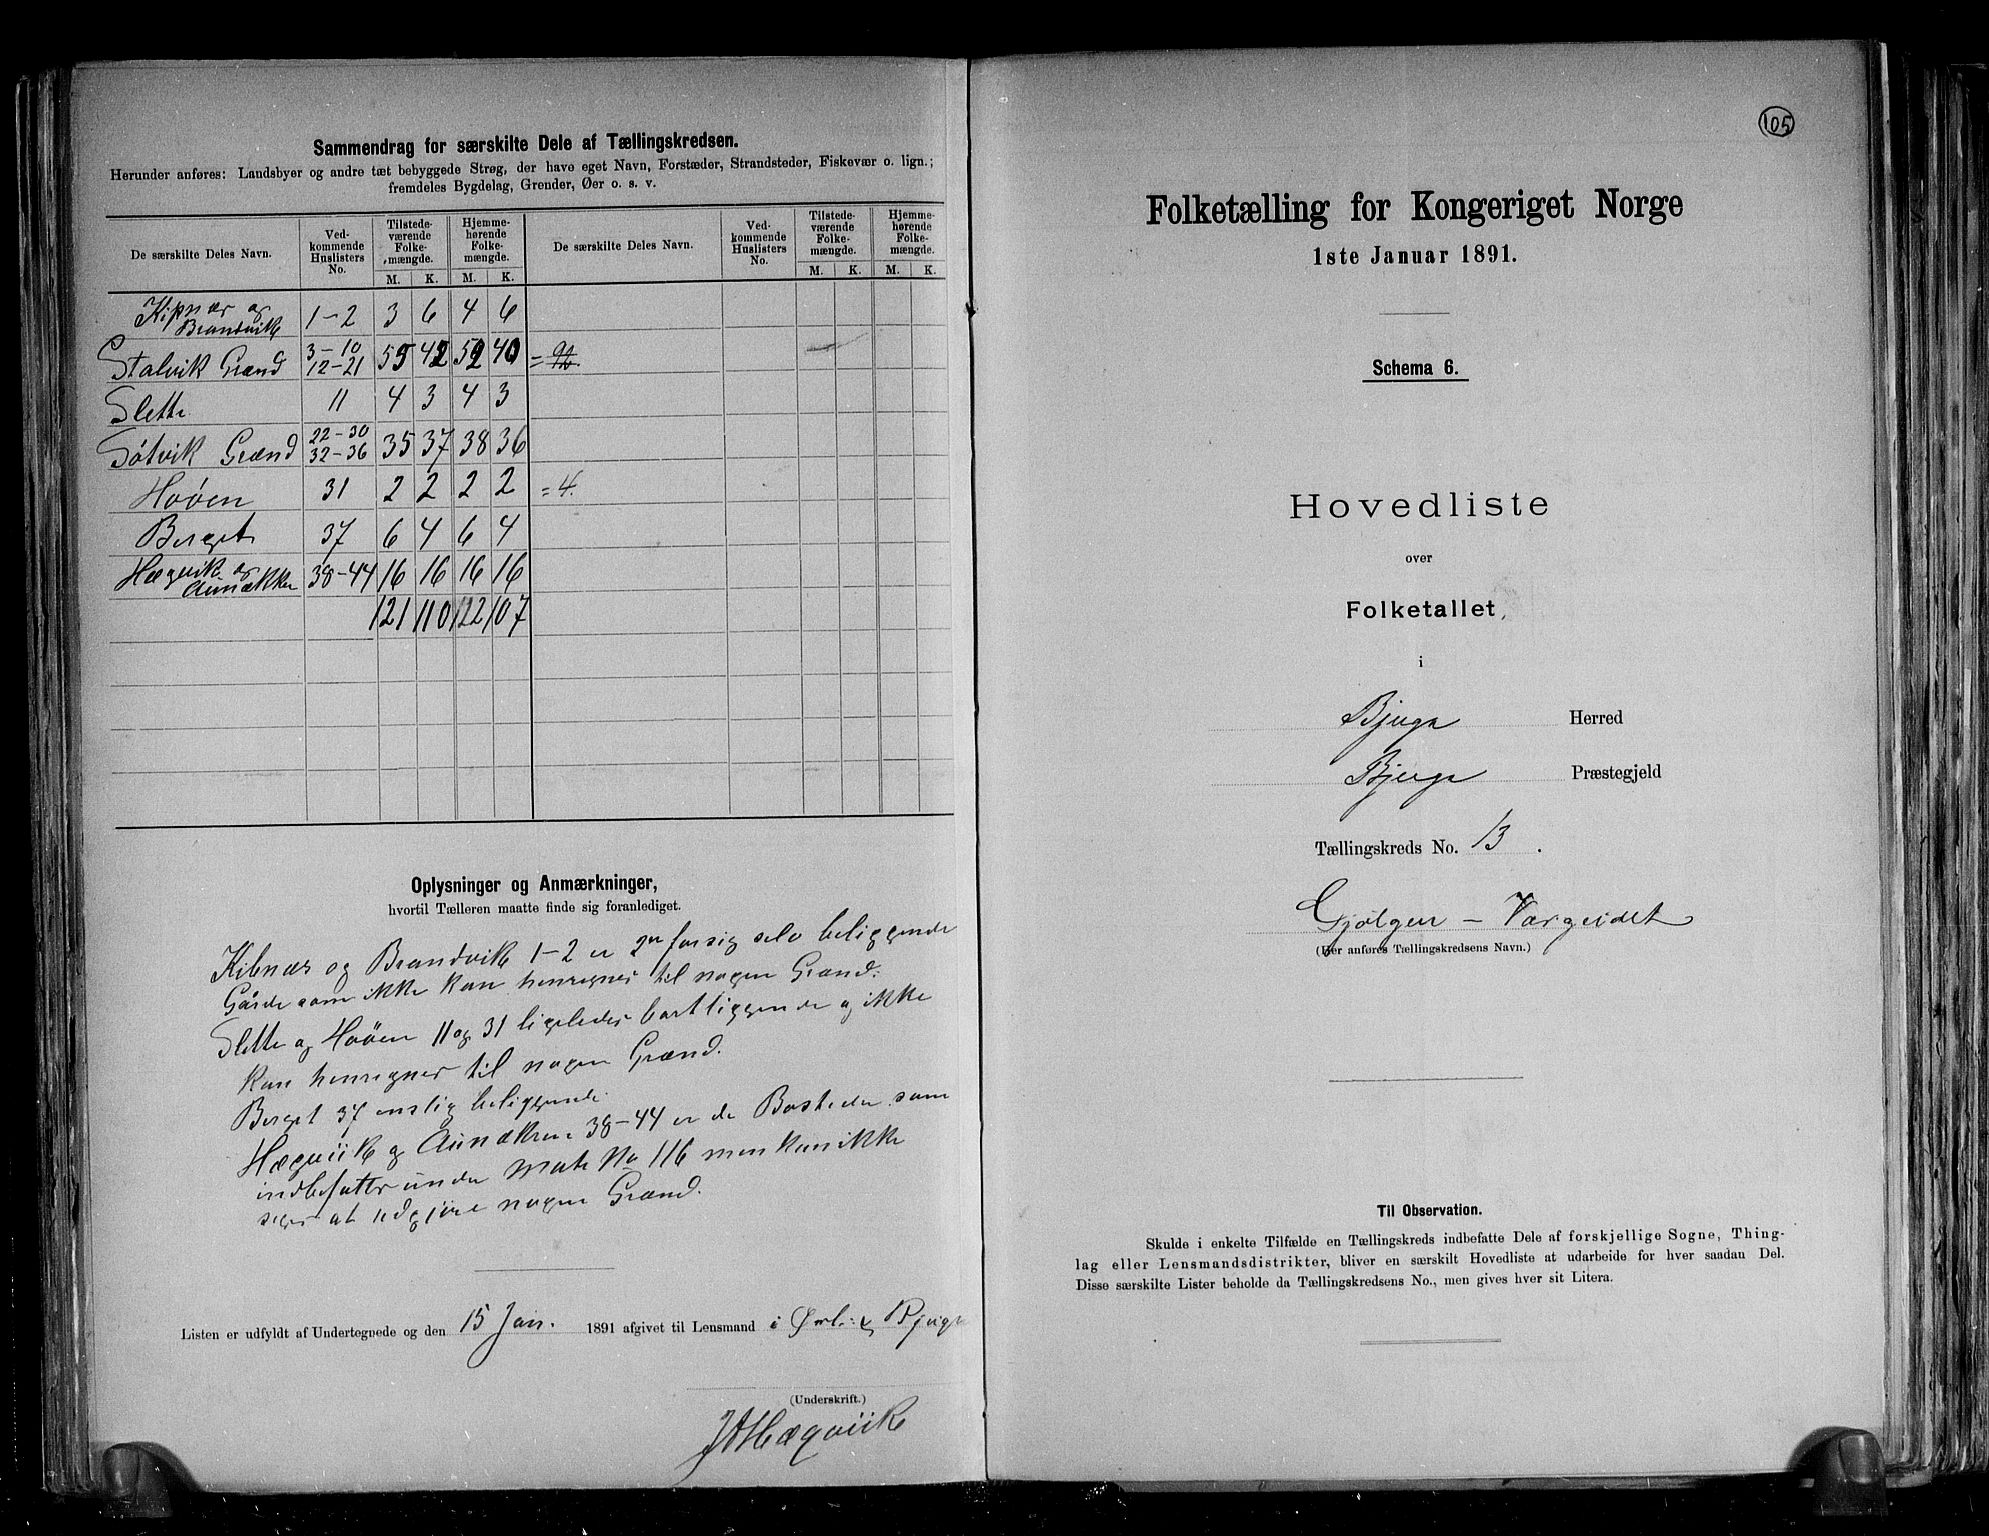 Sammendrag for særskilte Dele af Tællingskredsen.
Herunder anføres: Landsbyer og andre tæt bebyggede Strøg, der have eget Navn, Forstæder, Strandsteder, Fiskevær o. lign.;
fremdeles Bygdelag, Grender, Øer o. s. v.
De særskilte Deles Navn. Vedkommende Huslisters No. Tilstedeværende Folkemængde. M. K. Hjemmehørende Folkemængde. M. K. De særskilte Deles Navn. Vedkommende Huslisters No. Tilstedeværende Folkemængde. M. K. Hjemmehørende Folkemængde. M. K.
Kipnær og Brandvik 1-2 3 6 4 6
Stalvik Grænd 3-10 12-21 55 42 52 40 = 92.
Slette 11 4 3 4 3
Søtvik Grænd 22-30 32-36 35 37 38 36
Hoøen 31 2 2 2 2 = 4.
Berget 37 6 4 6 4
Hægvik og Aunækken 38-44 16 16 16 16
121 110 122 107
Oplysninger og Anmærkninger,
hvortil Tælleren maatte finde sig foranlediget.
Kibnær og Brandvik 1-2 er 2er forsig selv beliggende
Gårde som ikke kan henregnes til nogen Grænd.
Slette og Hoøen 11 og 31 ligeledes bortliggende og ikke
kan henregnes til nogen Grænd.
Berget 37 enslig beliggende.
Hægviik og Aunækren 38-44 er de Bosteder som
indbefattes under Matr No 116 men kan ikke
siges at udgjøre nogen Grænd.
Listen er udfyldt af Undertegnede og den 15 Jan. 1891 afgivet til Lensmand i Ørl. & Bjugn
(Underskrift.)
JAHægviik
105
Folketælling for Kongeriget Norge
1ste Januar 1891.
Schema 6.
Hovedliste
over
Folketallet
i
Bjugn Herred
Bjugn Præstegjeld
Tællingskreds No. 13.
Gjølgen - Vargeidet
(Her anføres Tællingskredsens Navn.)
Til Observation.
Skulde i enkelte Tilfælde en Tællingskreds indbefatte Dele af forskjellige Sogne, Thing-
lag eller Lensmandsdistrikter, bliver en særskilt Hovedliste at udarbeide for hver saadan Del.
Disse særskilte Lister beholde da Tællingskredsens No., men gives hver sit Litera.